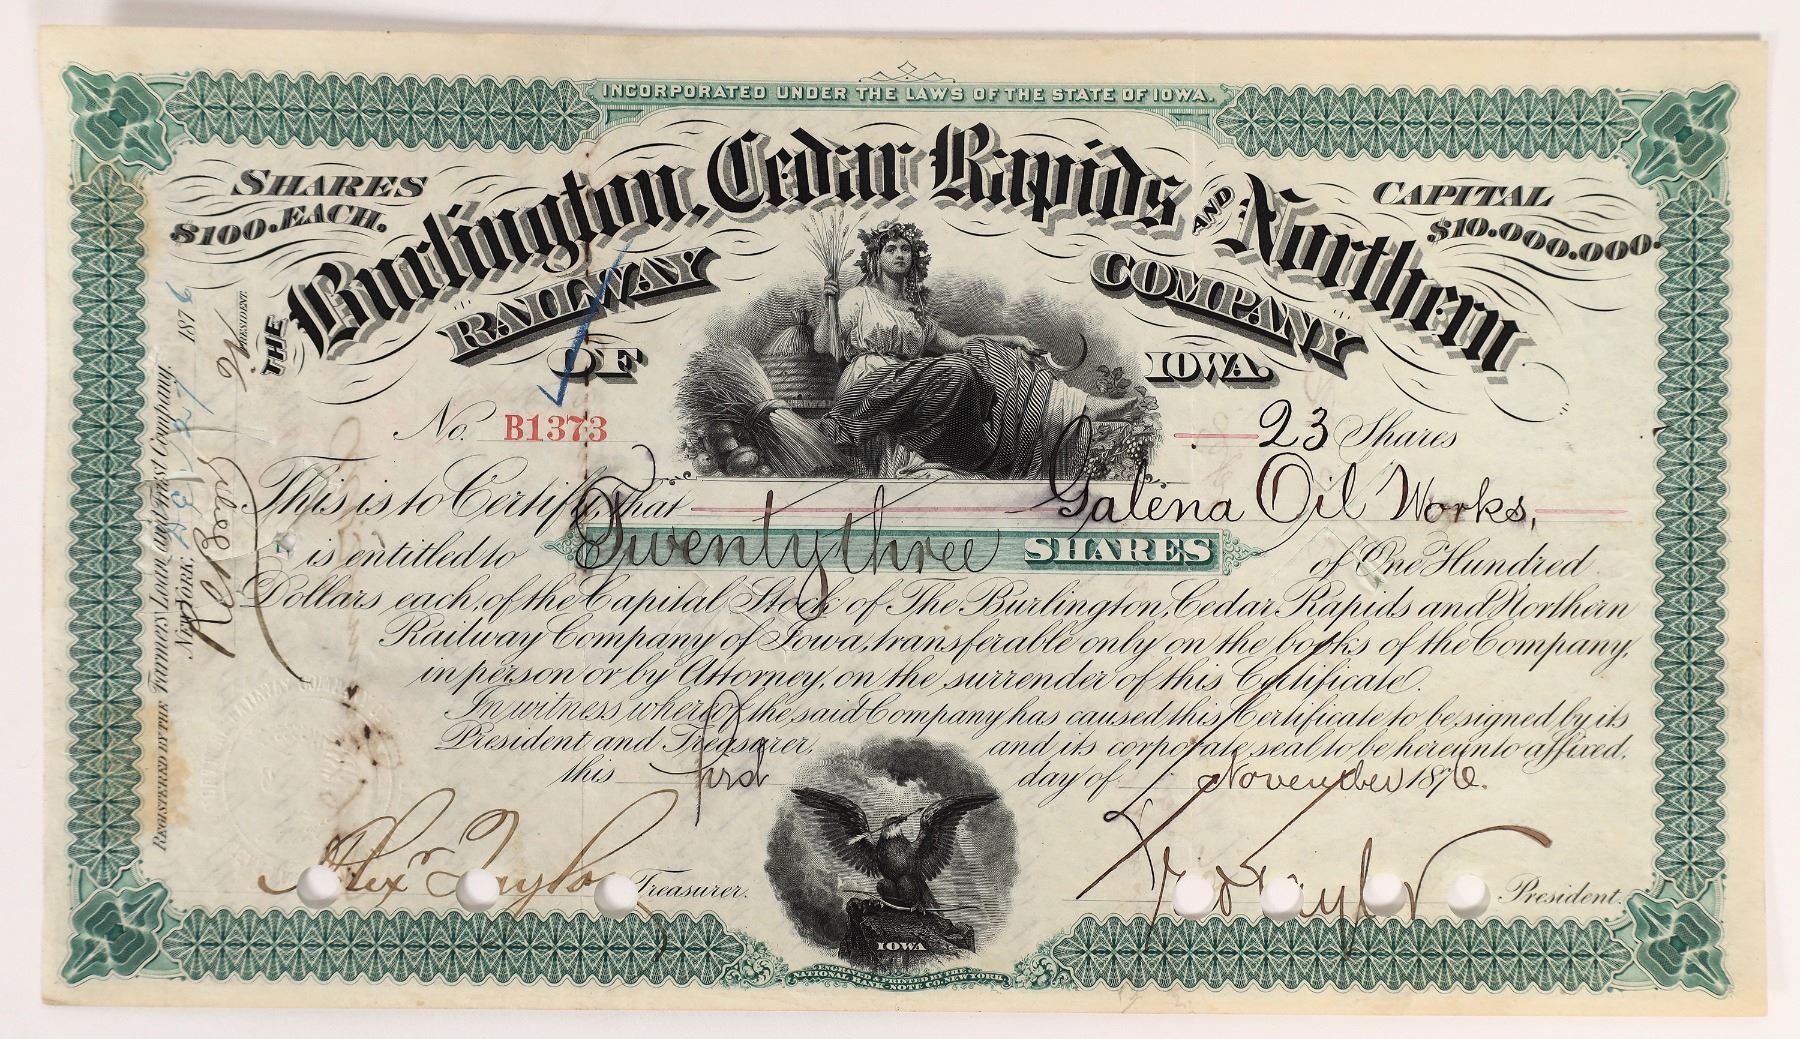 INCORPORATED UNDER THE LAWS OF THE STATE OF IOWA.
SHARES
$100. EACH.
CAPITAL
$10.000.000.
THE Burlington, Cedar Rapids AND Northern
RAILWAY COMPANY
OF IOWA.
No. B1373
23 Shares
This is to Certify, that Galena Oil Works,
is entitled to Twenty three SHARES of One Hundred
Dollars each, of the Capital Stock of The Burlington, Cedar Rapids and Northern
Railway Company of Iowa, transferable only on the books of the Company,
in person or by Attorney, on the surrender of this Certificate.
In witness whereof the said Company has caused this Certificate to be signed by its
President and Treasurer, and its corporate seal to be hereunto affixed,
this 3rd day of November 1876.
Alexr Taylor Treasurer.
Taylor President.
IOWA
ENGRAVED & PRINTED BY THE
NATIONAL BANK-NOTE CO. NEW YORK.
REGISTERED BY THE Farmers' Loan and Trust Company,
NEW YORK: 27 1876
PRESIDENT.
RAILWAY COMPANY